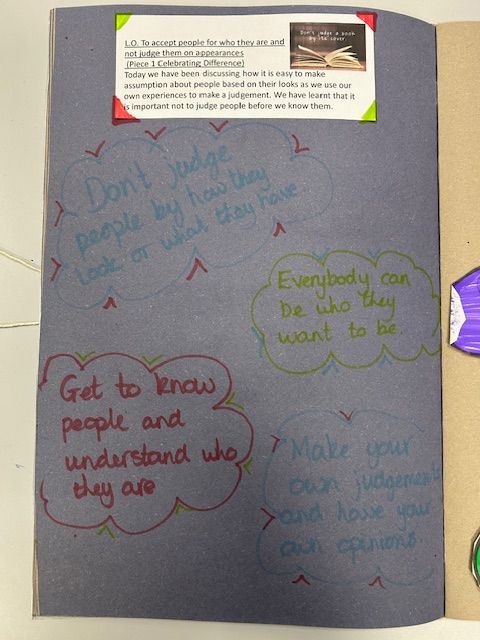 L.O. To accept people for who they are and
not judge them on appearances
(Piece 1 Celebrating Difference)
Today we have been discussing how it is easy to make
assumption about people based on their looks as we use our
own experiences to make a judgement. We have learnt that it
is important not to judge people before we know them.
Don't judge a book
by its cover.
Don't judge
people by how they
look or what they have
Everybody can
be who they
want to be.
Get to know
people and
understand who
they are
Make your
own judgements
and have your
own opinions.